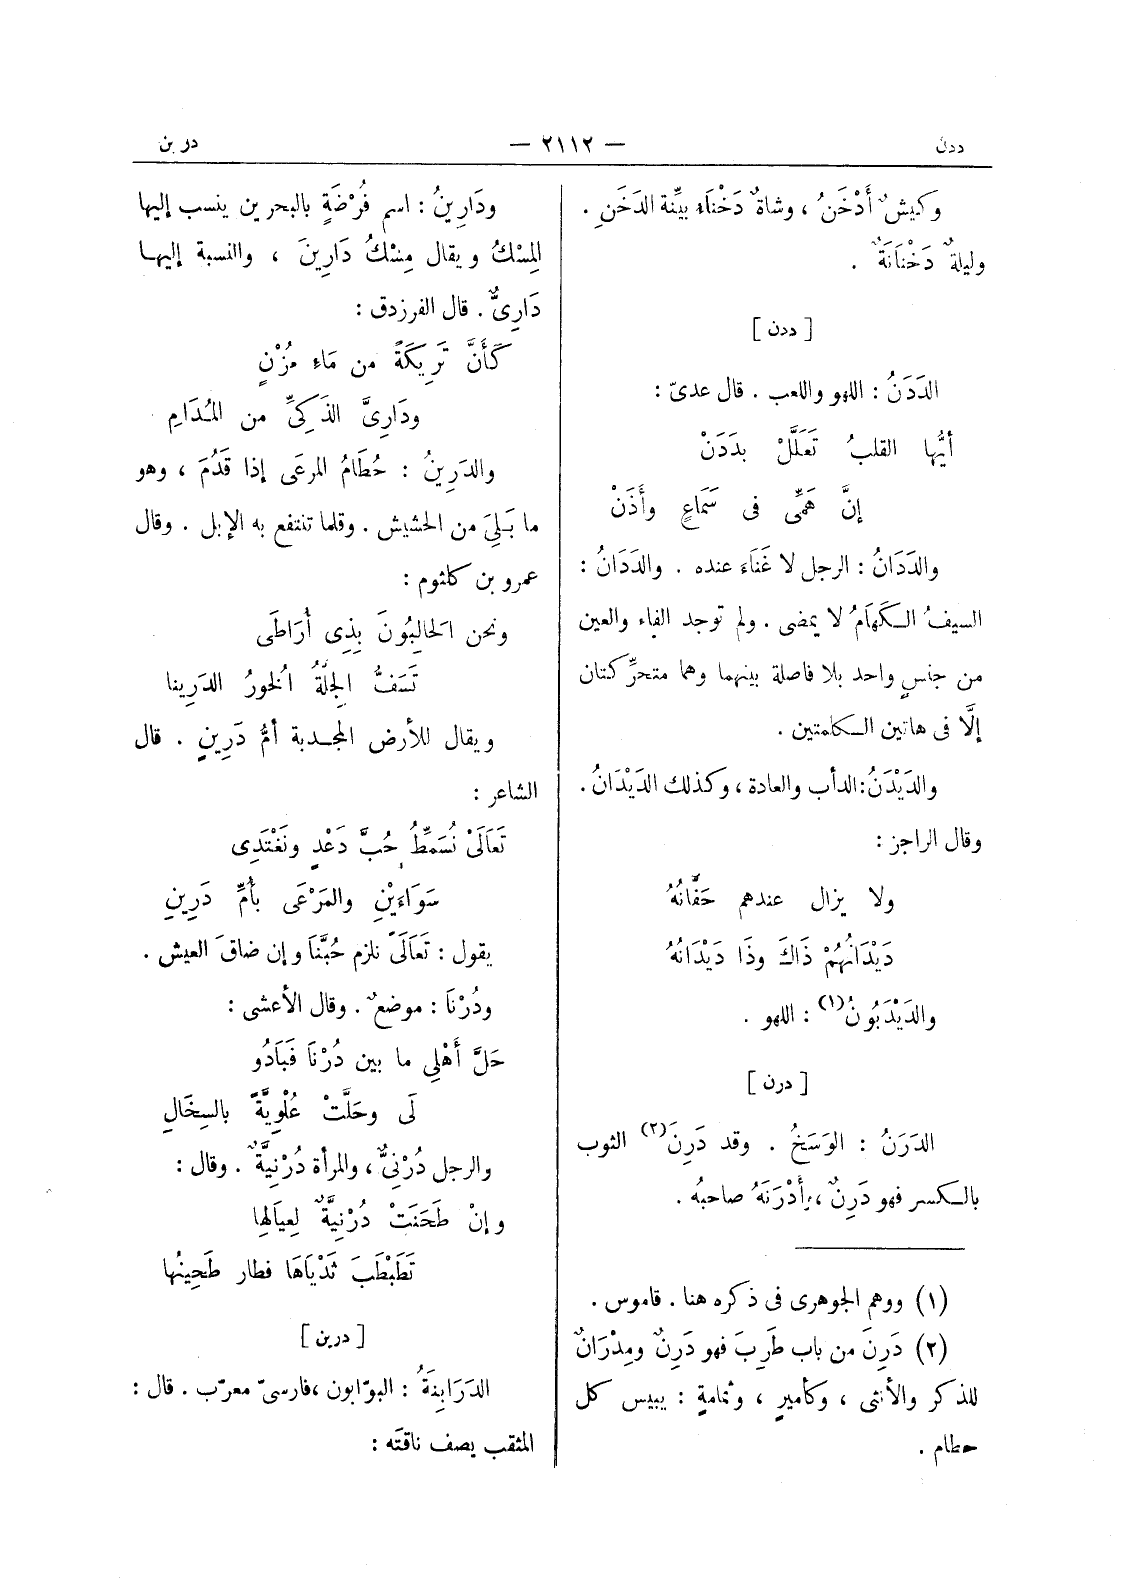 ددن
— ٢١١٢ —
دربن
وكبشٌ أَدْخَنُ ، وشاةٌ دَخْنَاءُ بيِّنة الدَخَنِ .
وليلةٌ دَخْنَانَةٌ .
[ ددن ]
الدَدَنُ : اللهو واللعب . قال عدىّ :
أيُّها القلبُ تَعَلَّلْ بدَدَنْ
إنَّ هَمِّى فى سَمَاعٍ وأَذَنْ
والدَدَانُ : الرجل لا غَنَاءَ عنده . والدَدَانُ :
السيفُ الكَهَامُ لا يمضى . ولم توجد الفاء والعين
من جنسٍ واحد بلا فاصلة بينهما وهما متحرِّكتان
إلَّا فى هاتين الكلمتين .
والدَيْدَنُ : الدأب والعادة ، وكذلك الدَيْدَانُ .
وقال الراجز :
ولا يزال عندهم حَفَّانُهُ
دَيْدَانُهُمْ ذَاكَ وذَا دَيْدَانُهُ
والدَيْدَبُونُ(١) : اللهو .
[ درن ]
الدَرَنُ : الوَسَخُ . وقد دَرِنَ(٢) الثوب
بالكسر فهو دَرِنٌ ، وأَدْرَنَهُ صاحبُه .
(١) ووهم الجوهرى فى ذكره هنا . قاموس .
(٢) دَرِنَ من باب طَرِبَ فهو دَرِنٌ ومِدْرَانٌ
للذكر والأنثى ، وكأميرٍ ، وثمامةٍ : يبيس كل
حطام .
ودَارِينُ : اسم فُرْضَةٍ بالبحرين ينسب إليها
المِسْكُ ويقال مِسْكُ دَارِينَ ، والنسبة إليها
دَارِىٌّ . قال الفرزدق :
كَأَنَّ تَرِيكَةً من مَاءِ مُزْنٍ
ودَارِىَّ الذَكِىِّ من المُدَامِ
والدَرِينُ : حُطَامُ المرعَى إذا قَدُمَ ، وهو
ما بَلِىَ من الحشيش . وقلما تنتفع به الإبل . وقال
عمرو بن كلثوم :
ونحن الحَالِبُونَ بِذِى أُرَاطَى
تَسَفُّ الجِلَّةُ الخورُ الدَرِينا
ويقال للأرض المجدبة أمُّ دَرِينٍ . قال
الشاعر :
تَعَالَىْ نُسَمِّطُ حُبَّ دَعْدٍ ونَغْتَدِى
سَوَاءَيْنِ والمَرْعَى بأُمِّ دَرِينِ
يقول : تَعَالَىْ نلزم حُبَّنَا وإن ضاقَ العيش .
ودُرْنَا : موضعٌ . وقال الأعشى :
حَلَّ أَهْلِى ما بين دُرْنَا فَبَادُو
لَى وحَلَّتْ عُلْوِيَّةً بالسِخَالِ
والرجل دُرْنِىٌّ ، والمرأة دُرْنِيَّةٌ . وقال :
وإنْ طَحَنَتْ دُرْنِيَّةٌ لِعيَالِها
تَطَبْطَبَ ثَدْيَاهَا فطار طَحِينُها
[ دربن ]
الدَرَابِنَةُ : البوّابون ، فارسىّ معرّب . قال :
المثقب يصف ناقتَه :